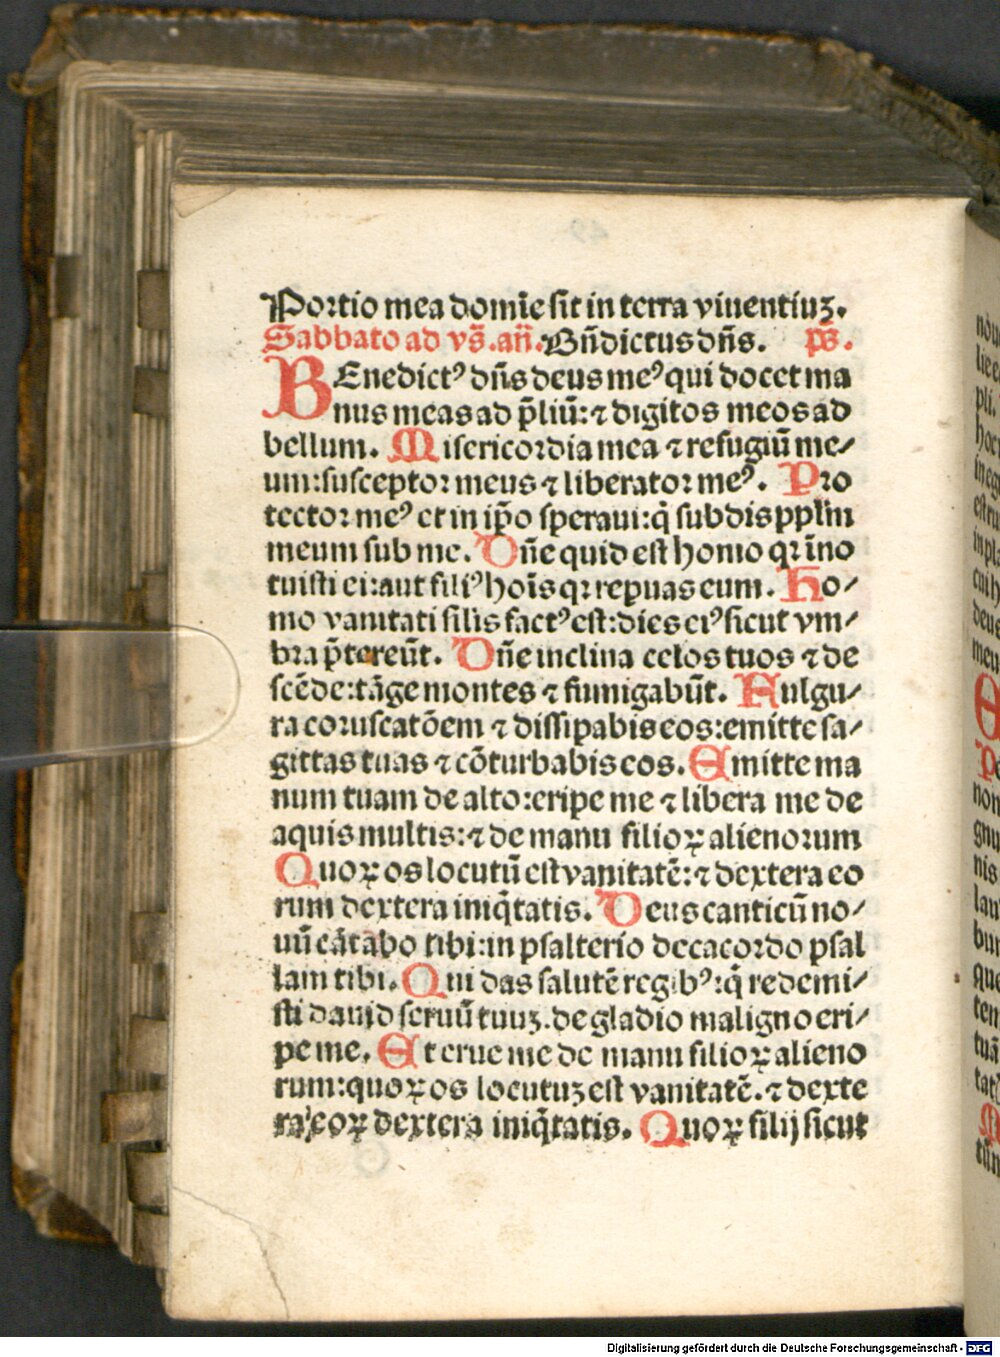 Portio mea domīe sit in terra viuentiuꝫ.
Sabbato ad vs̄. an̄. Bn̄dictus dn̄s. ps̄.
BEnedictꝰ dn̄s deus meꝰ qui docet ma
nus meas ad p̄liū: ⁊ digitos meos ad
bellum. Misericordia mea ⁊ refugiū me⸗
um: susceptor meus ⁊ liberator meꝰ. Pro
tector meꝰ et in ip̄o speraui: q̄ subdis pplm̄
meum sub me. Dn̄e quid est homo qꝛ īno
tuisti ei: aut filiꝰ hoīs qꝛ reputas eum. Ho⸗
mo vanitati silis factꝰ est: dies eiꝰ sicut vm⸗
bra p̄tereūt. Dn̄e inclina celos tuos ⁊ de
scēde: tāge montes ⁊ fumigabūt. Fulgu⸗
ra coruscatōem ⁊ dissipabis eos: emitte sa⸗
gittas tuas ⁊ cōturbabis eos. Emitte ma
num tuam de alto: eripe me ⁊ libera me de
aquis multis: ⁊ de manu filioꝝ alienorum
Quoꝝ os locutū est vanitatē: ⁊ dextera eo
rum dextera iniq̄tatis. Deus canticū no⸗
uū cātabo tibi: in psalterio decacordo psal
lam tibi. Qui das salutē regibꝰ: q̄ redemi⸗
sti dauid seruū tuuꝫ. de gladio maligno eri⸗
pe me. Et erue me de manu filioꝝ alieno
rum: quoꝝ os locutuꝫ est vanitatē. ⁊ dexte
ra eoꝝ dextera iniq̄tatis. Quoꝝ filij sicut
Digitalisierung gefördert durch die Deutsche Forschungsgemeinschaft - DFG